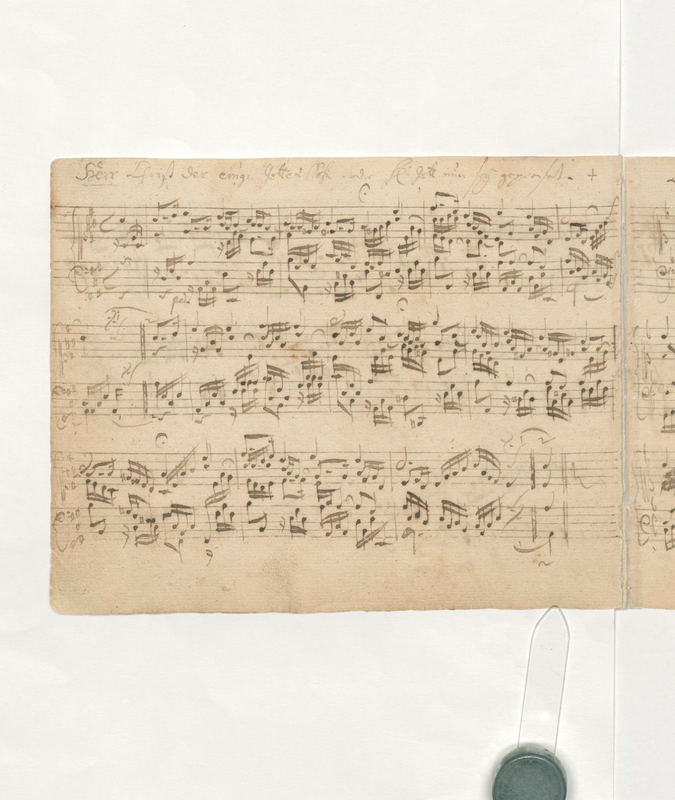 Herr Christ der einge Gottes Sohn. oder H. Gott nun sey gepreiset. +
ped.